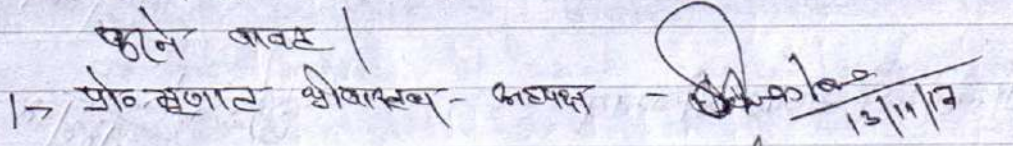 करने बावत |
1-> प्रो० सुजात श्रीवास्तव - अध्यक्ष - 13/11/17